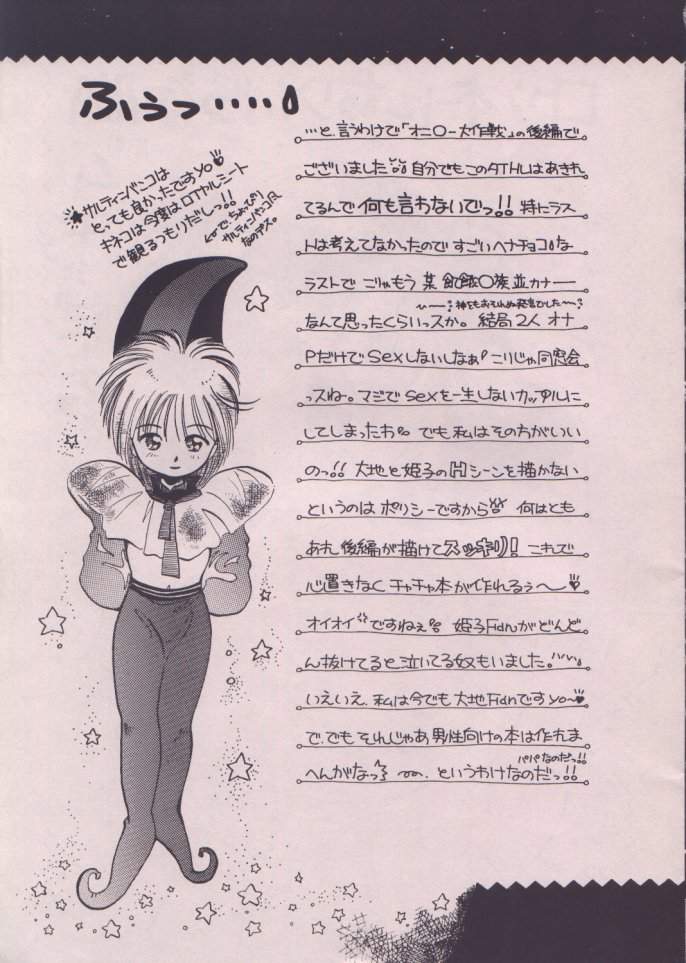 ふぅっ‥‥
サルティンバンコは
とっても良かったですyo
キネコは今度はロイヤルシート
で観るつもりだしっ!!
で、ちょっぴり
サルティンバンコ
なのデス。
…と、言うわけで「オニロー大作戦」の後編で
ございました 自分でもこのタTHLはあきれ
てるんで何も言わないでっ!! 特にラス
トは考えてなかったので すごいヘナチョコな
ラストで こりゃもう 某 飢餓〇族並カナー
〜神をもおそれぬ発言でした〜
なんて思ったくらいっスか。結局2人 オナ
PだけでSexしないしなぁ こりじゃ同窓会
っスね。マジでsexを一生しないカップルに
してしまったわ でも私はその方がいい
のっ!! 大地と姫子のHシーンを描かない
というのは ポリシーですから 何はとも
あれ 後編が描けてスッキリ! これで
心置きなく チャチャ本が作れるぅ〜
オイオイ ですねぇ 姫子Fanがどんど
ん抜けてると泣いてる奴もいました。
いえいえ、私は今でも大地Fanですyo〜
で、でも それじゃあ男性向けの本は作れま
へんがなっ 、というわけなのだっ!!
パパなのだっ!!